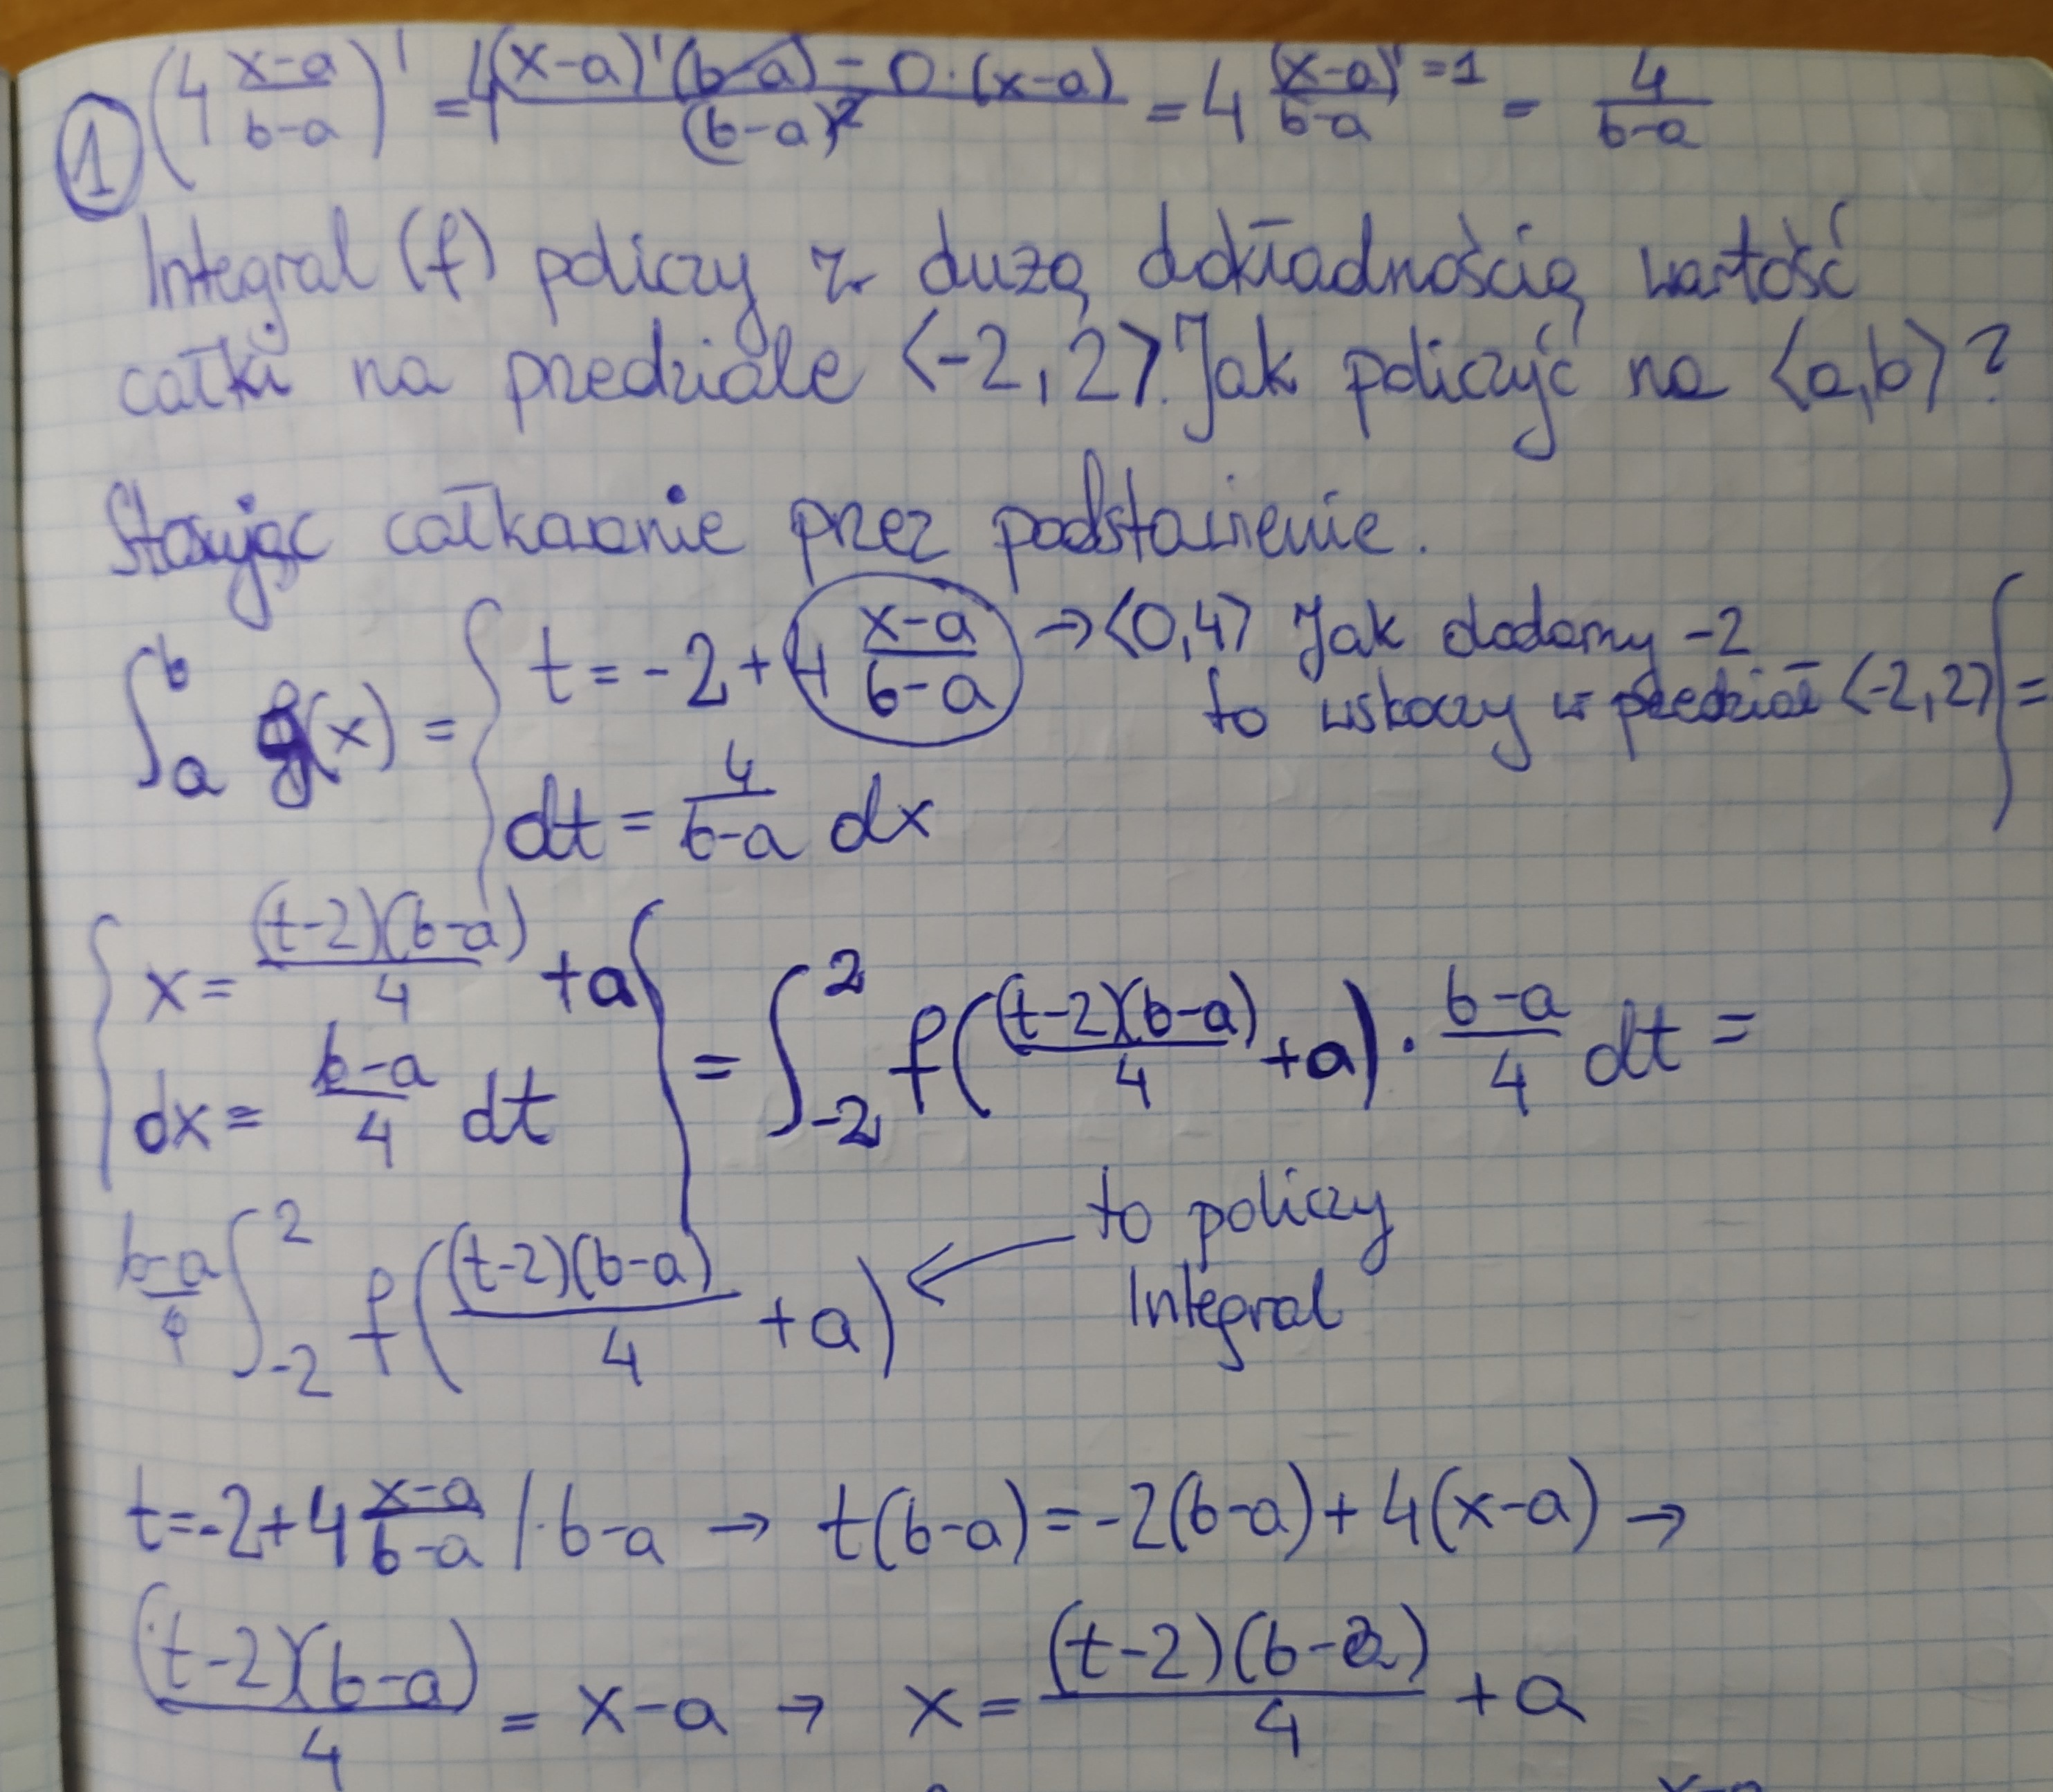 ① (4 (x-a)/(b-a))' = 4 ((x-a)'(b-a) - 0·(x-a))/(b-a)² = 4 (x-a)'=1/(b-a) = 4/(b-a)
Integral (f) policzy z dużą dokładnością wartość
całki na przedziale <-2,2>. Jak policzyć na <a,b>?
Stosując całkaonie przez podstawienie.
∫_a^b g(x) = { t = -2 + 4 (x-a)/(b-a) → <0,4> Jak dodamy -2
to wskoczy w przedział <-2,2> } =
dt = 4/(b-a) dx
{ x = (t-2)(b-a)/4 + a
dx = (b-a)/4 dt } = ∫_-2^2 f((t-2)(b-a)/4 + a) · (b-a)/4 dt =
(b-a)/4 ∫_-2^2 f((t-2)(b-a)/4 + a) ← to policzy
Integral
t = -2 + 4 (x-a)/(b-a) / · b-a → t(b-a) = -2(b-a) + 4(x-a) →
(t-2)(b-a)/4 = x-a → x = (t-2)(b-a)/4 + a